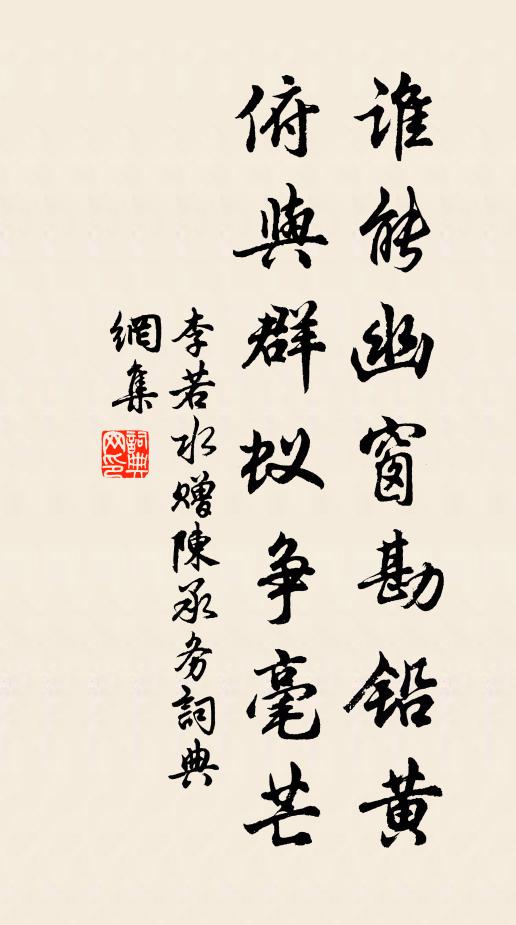 谁能幽窗勘铅黄
俯與群蚁争毫芒
李若水赠陳承务詞典
網集
詞典
网印